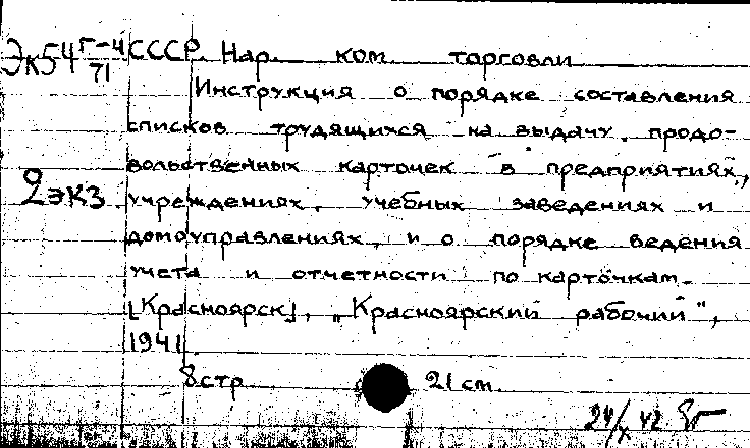 Эк54 г-4/71 СССР. Нар. ком. торговли
Инструкция о порядке составления
списков трудящихся на выдачу продо-
вольственных карточек в предприятиях,
2 экз. учреждениях, учебных заведениях и
домоуправлениях, и о порядке ведения
учета и отчетности по карточкам.
[Красноярск], „Красноярский рабочий",
1941
8 стр. 21 см.
24/X 42